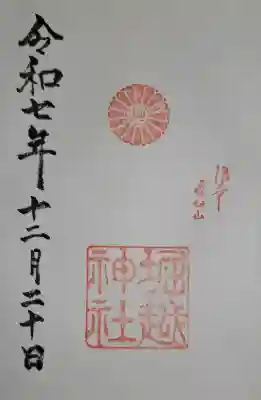 堀越
神社
令和七年十二月二十日